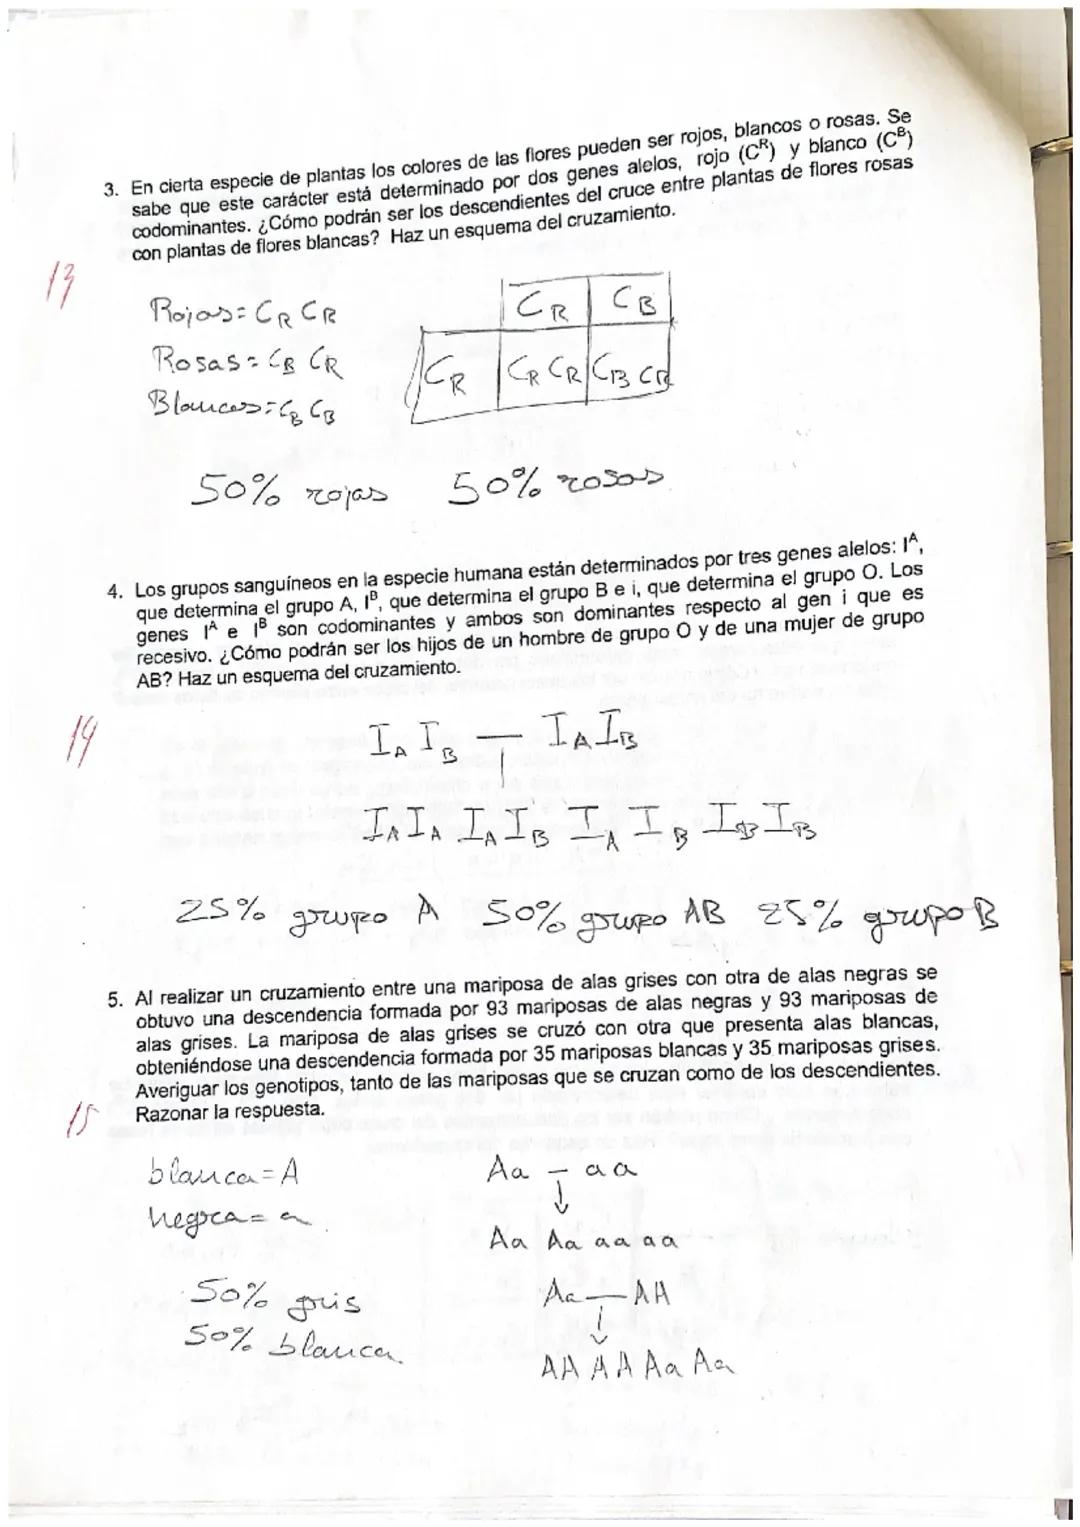 3. En cierta especie de plantas los colores de las flores pueden ser rojos, blancos o rosas. Se
sabe que este carácter está determinado por dos genes alelos, rojo (Cᴿ) y blanco (Cᴮ)
codominantes. ¿Cómo podrán ser los descendientes del cruce entre plantas de flores rosas
con plantas de flores blancas? Haz un esquema del cruzamiento.
13
Rojas = CR CR
Rosas = CB CR
Blancas = CB CB
CR CB
CR CR CR CB CR
50% rojas 50% rosas
4. Los grupos sanguíneos en la especie humana están determinados por tres genes alelos: Iᴬ,
que determina el grupo A, Iᴮ, que determina el grupo B e i, que determina el grupo O. Los
genes Iᴬ e Iᴮ son codominantes y ambos son dominantes respecto al gen i que es
recesivo. ¿Cómo podrán ser los hijos de un hombre de grupo O y de una mujer de grupo
AB? Haz un esquema del cruzamiento.
14
IA IB — IA IB
IA IA IA IB IA IB IB IB
25% grupo A 50% grupo AB 25% grupo B
5. Al realizar un cruzamiento entre una mariposa de alas grises con otra de alas negras se
obtuvo una descendencia formada por 93 mariposas de alas negras y 93 mariposas de
alas grises. La mariposa de alas grises se cruzó con otra que presenta alas blancas,
obteniéndose una descendencia formada por 35 mariposas blancas y 35 mariposas grises.
Averiguar los genotipos, tanto de las mariposas que se cruzan como de los descendientes.
Razonar la respuesta.
15
blanca = A
negra = a
Aa – aa
↓
Aa Aa aa aa
50% gris
50% blanca.
Aa — AA
↓
AA AA Aa Aa